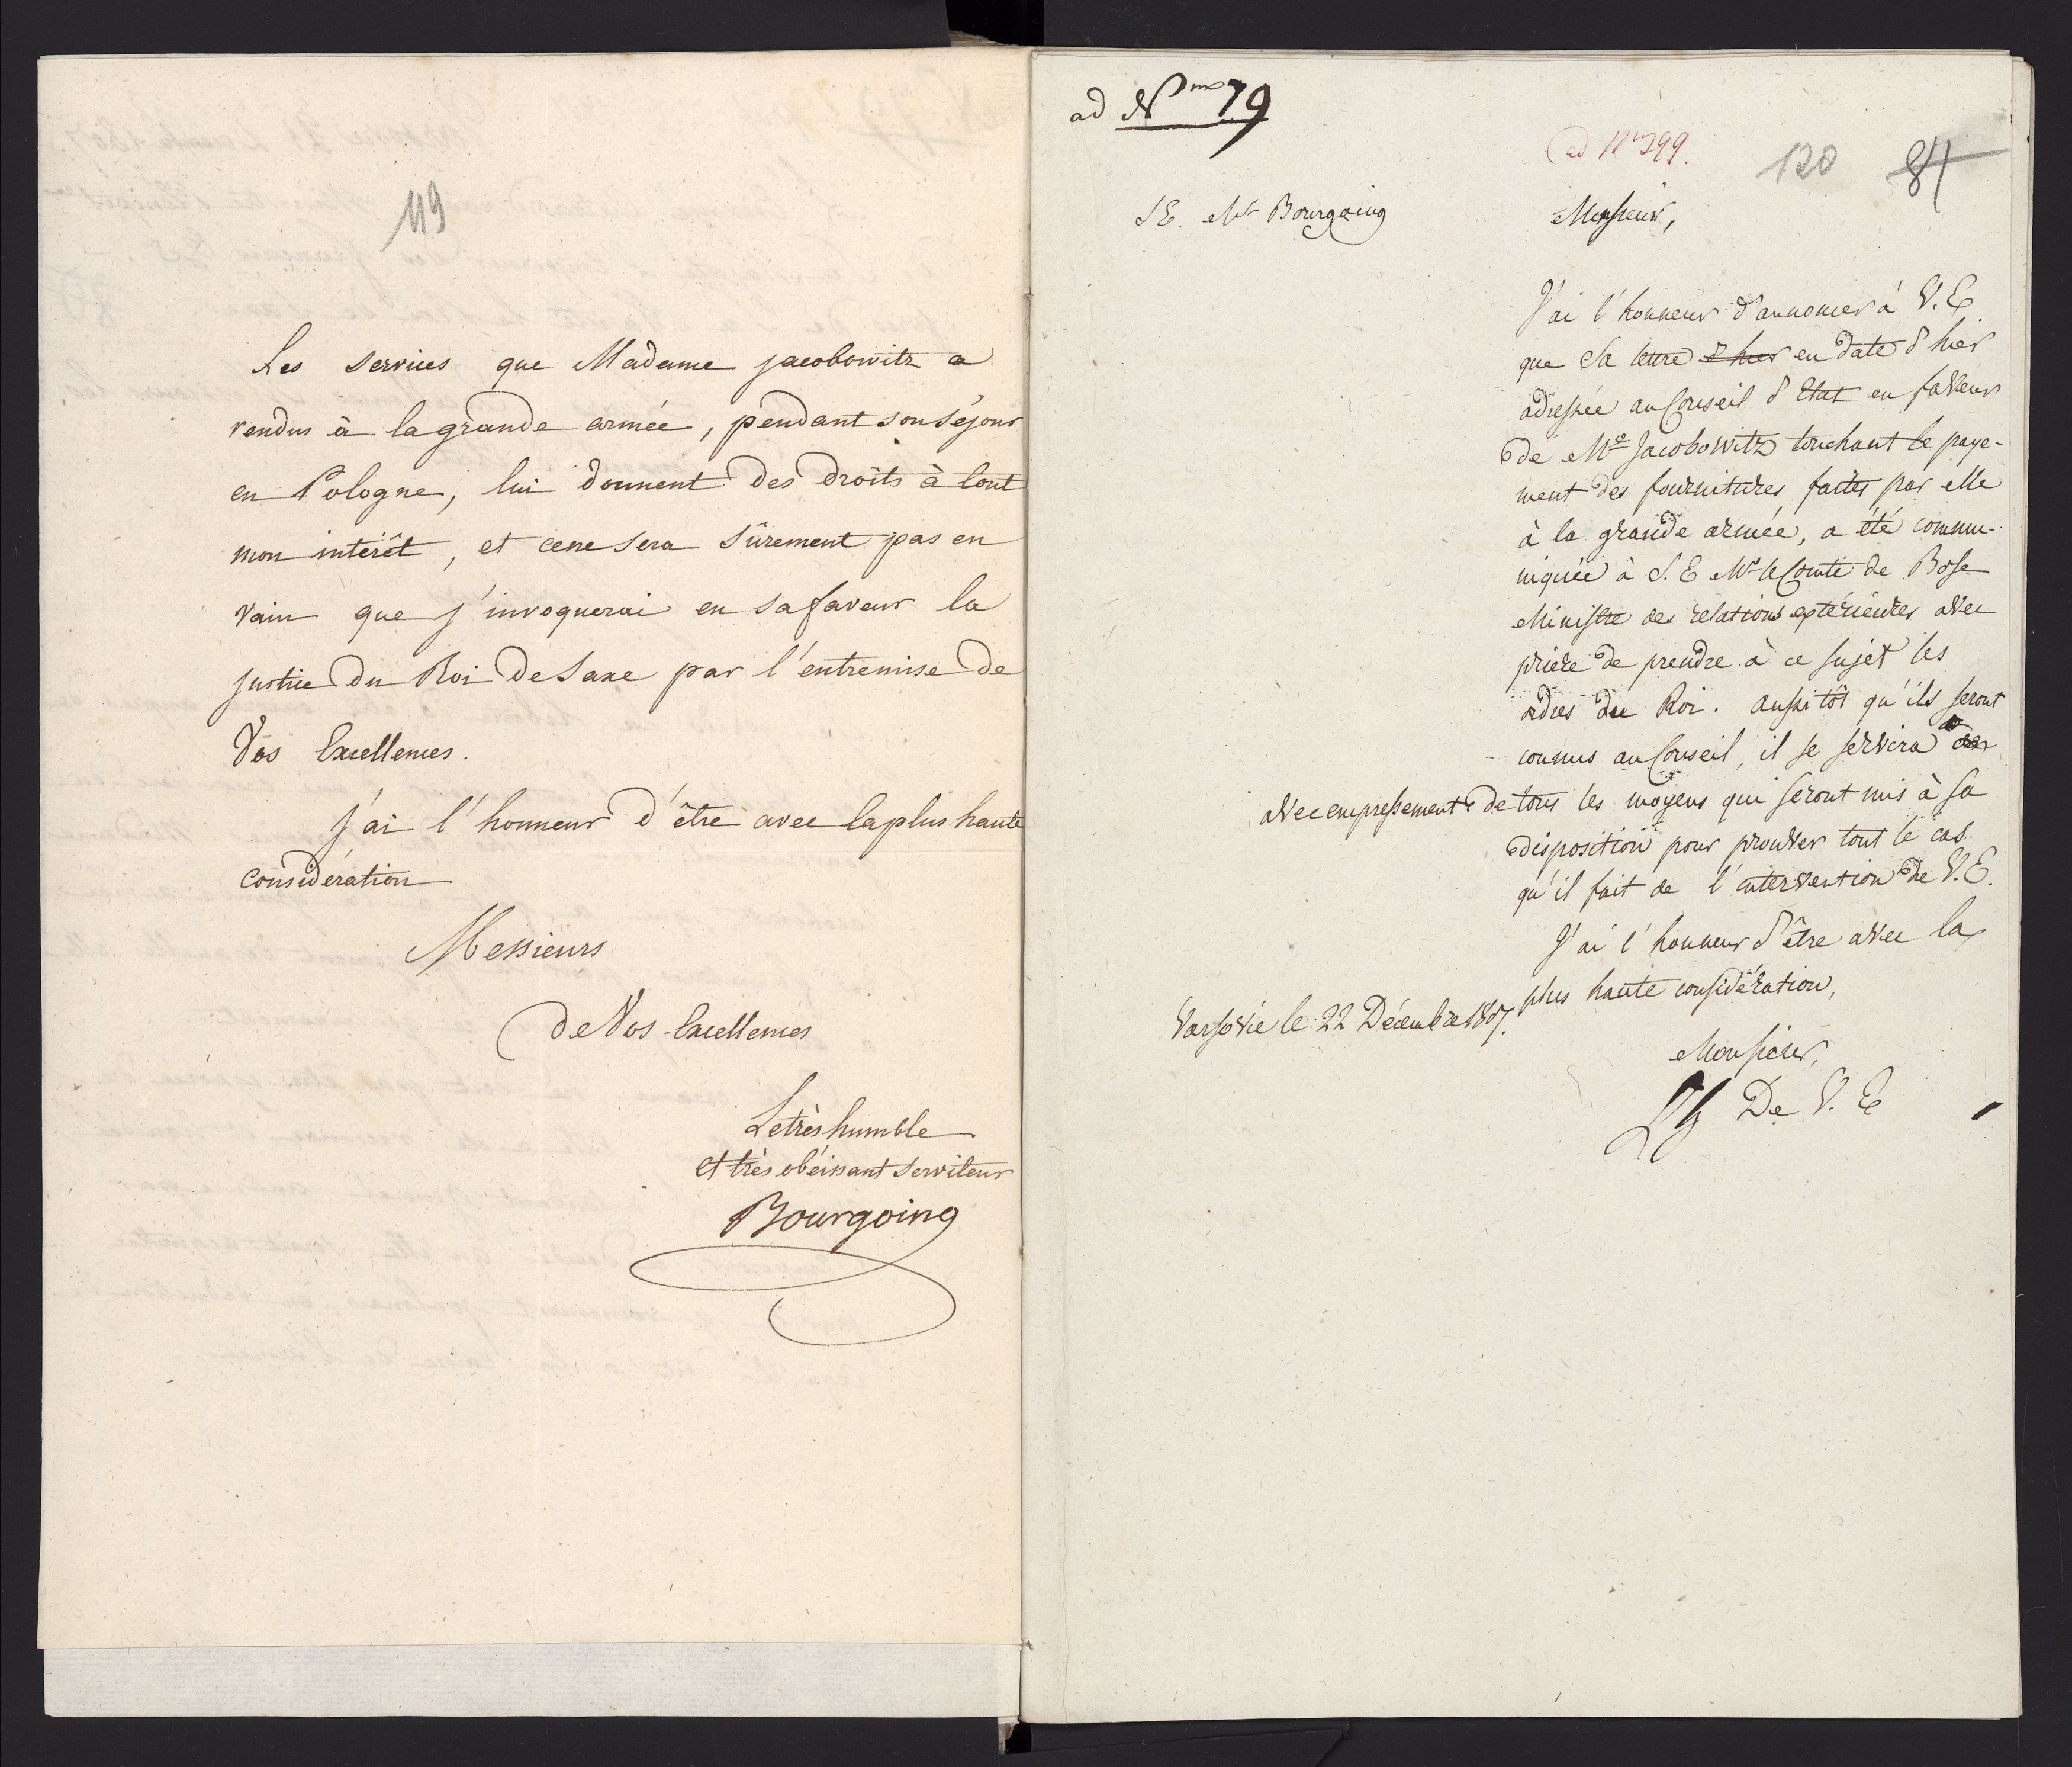 119
Les services que Madame Jacobowitz a
rendus à la grande armée, pendant son séjour
en Pologne, lui donnent des droits à tout
mon intérêt, et ce ne sera sûrement pas en
vain que j'invoquerai en sa faveur la
justice du Roi de Saxe par l'entremise de
Vos Excellences.
J'ai l'honneur d'être avec la plus haute
considération
Messieurs
de Vos Excellences
Le très humble
et très obéissant serviteur
Bourgoing
ad Nm 79
ad Nr 299.
120 84
S E. Mr Bourgoing
Monsieur,
J'ai l'honneur d'annoncer à V. E
que Sa lettre d'hier en date d'hier
adressée au Conseil d'Etat en faveur
de Me Jacobowitz touchant le paye-
ment des fournitures faites par elle
à la grande armée, a été commu-
niquée à S. E Mr le Comte de Bose
Ministre des relations extérieures avec
prière de prendre à ce sujet les
ordres du Roi. aussitôt qu'ils seront
connus au Conseil, il se servira
avec empressement de tous les moyens qui seront mis à sa
disposition pour prouver tout le cas
qu'il fait de l'intervention de V. E.
J'ai l'honneur d'être avec la
plus haute considération,
Varsovie le 22 Décembre 1807.
Monsieur,
De V. E